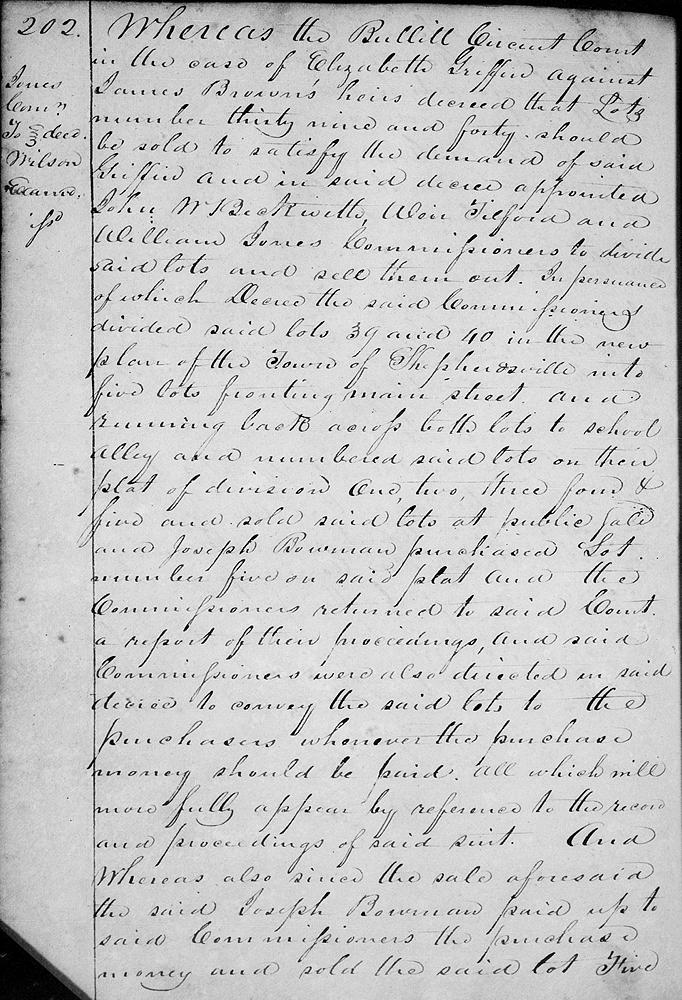 202.
Jones
Comr
To } deed.
Wilson
Examd.
Whereas the Bullitt Circuit Court
in the case of Elizabeth Griffin against
James Browns heirs decreed that Lots
number thirty nine and forty should
be sold to satisfy the demand of said
Griffin and in said decree appointed
John W Beckwith, Weir Tilford and
William Jones Commissioners to divide
said lots and sell them out. In persuance
of which Decree the said Commissioners
divided said lots 39 and 40 in the new
plan of the Town of Shepherdsville into
five lots fronting main street and
running back across both lots to school
alley and numbered said lots on their
plat of division One, two, three four &
five and sold said lots at public sale
and Joseph Bowman purchased Lot
number five on said plat and the
Commissioners returned to said Court.
a report of their proceedings, and said
Commissioners were also directed in said
decree to convey the said lots to the
purchasers whenever the purchase
money should be paid. all which will
more fully appear by reference to the record
and proceedings of said suit. And
Whereas also since the sale aforesaid
the said Joseph Bowman paid up to
said Commissioners the purchase
money and sold the said lot Five